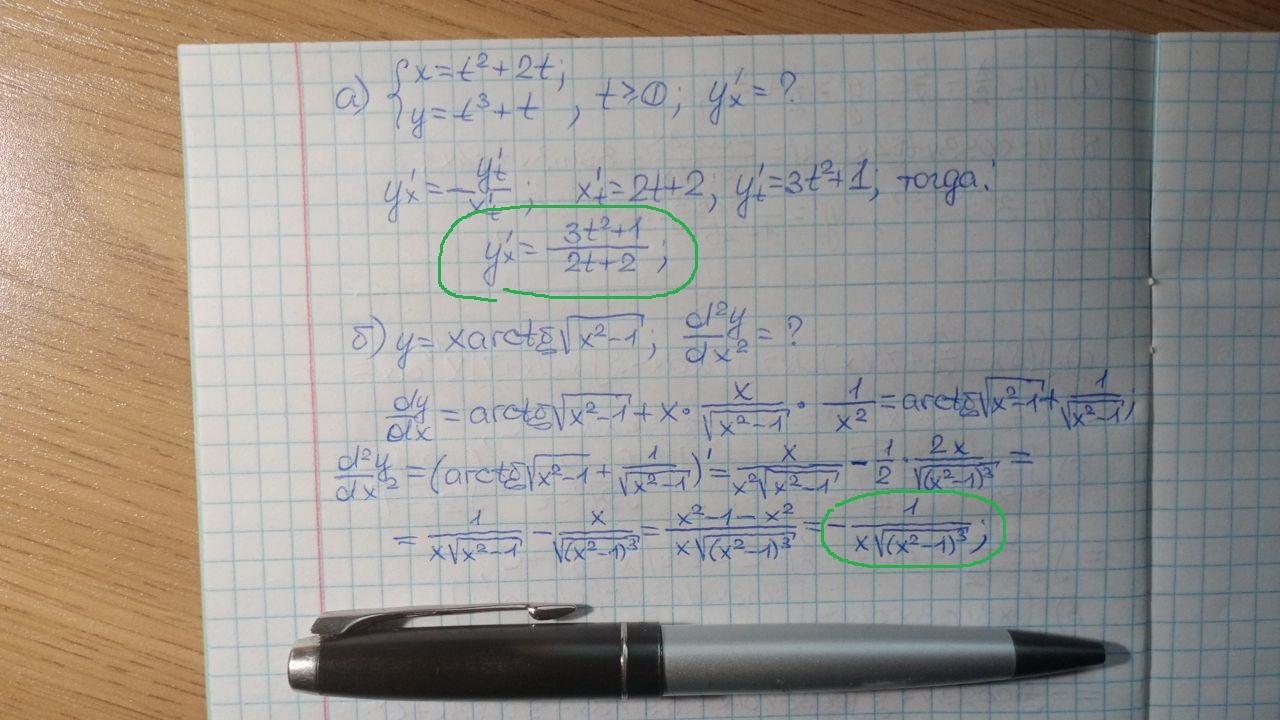 а) { x = t² + 2t;
y = t³ + t , t ≥ 0; y'ₓ = ?
y'ₓ = y'ₜ / x'ₜ ; x'ₜ = 2t + 2; y'ₜ = 3t² + 1; тогда:
y'ₓ = (3t² + 1) / (2t + 2) ;
б) y = x arctg √(x² − 1); d²y/dx² = ?
dy/dx = arctg √(x² − 1) + x · x/√(x² − 1) · 1/x² = arctg √(x² − 1) + 1/√(x² − 1);
d²y/dx² = (arctg √(x² − 1) + 1/√(x² − 1))' = x/(x²√(x² − 1)) − 1/2 · 2x/√((x² − 1)³) =
= 1/(x√(x² − 1)) − x/√((x² − 1)³) = (x² − 1 − x²)/(x√((x² − 1)³)) = − 1/(x√((x² − 1)³));